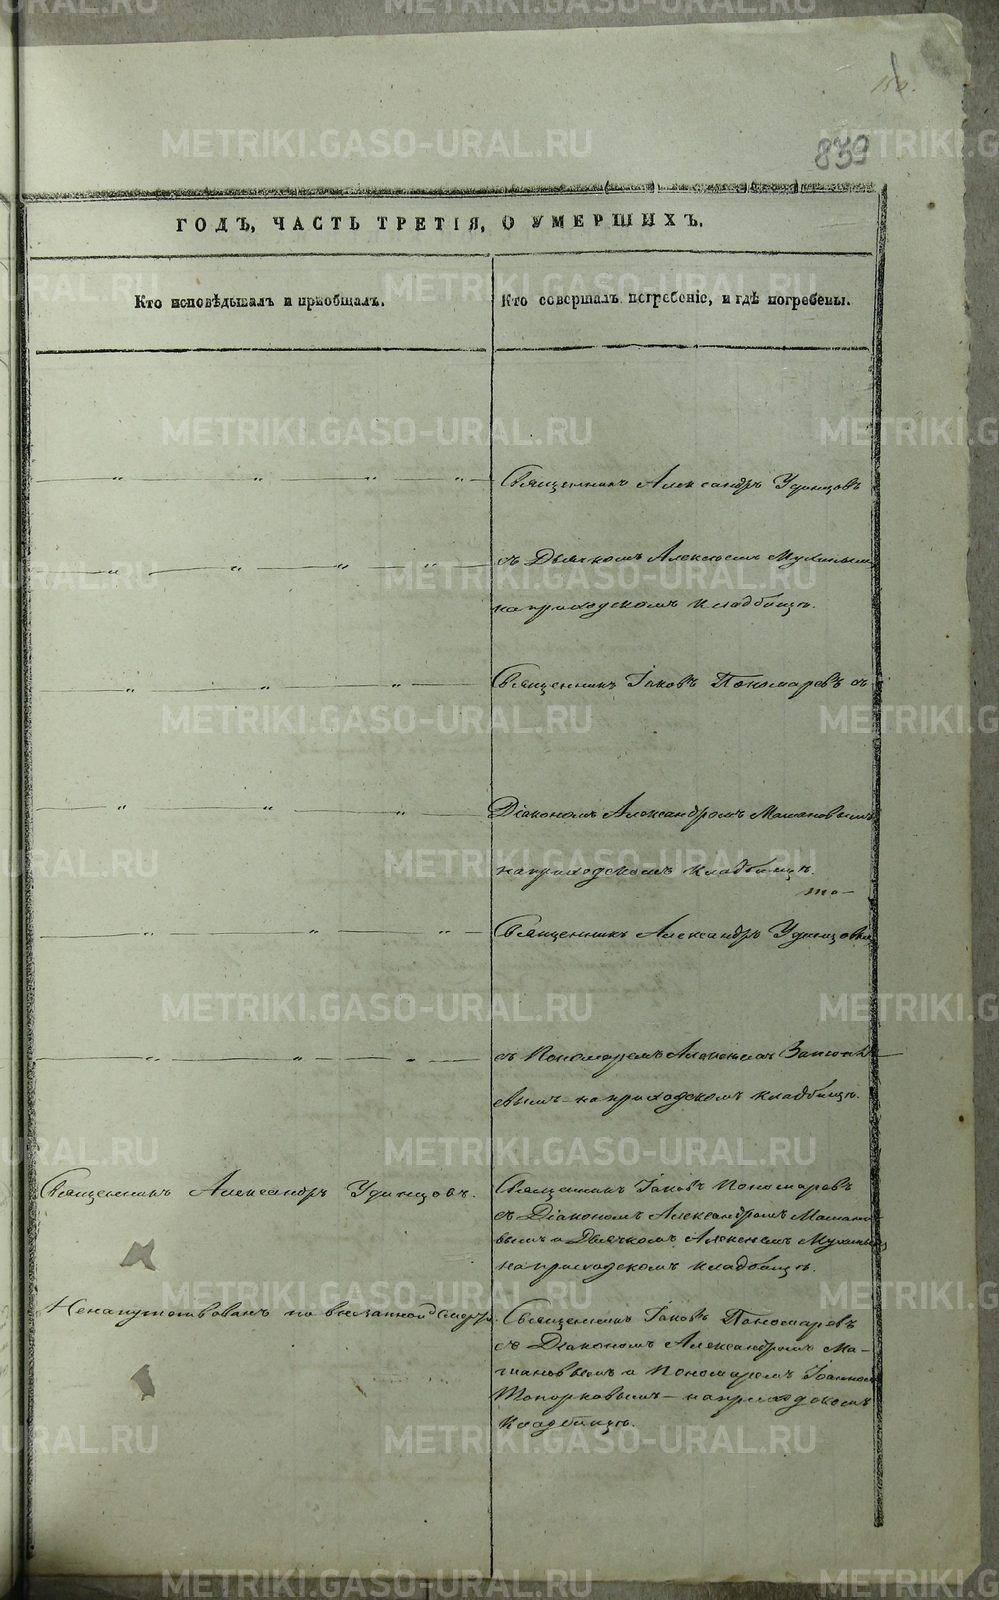 839
ГОДЪ, ЧАСТЬ ТРЕТІЯ, О УМЕРШИХЪ.
Кто исповѣдывалъ и пріобщалъ.
Кто совершалъ погребеніе, и гдѣ погребены.
Священникъ Александръ Удинцовъ
съ Дьячкомъ Алексѣемъ Мухинымъ
на приходскомъ кладбищѣ.
Священникъ Іаковъ Пономаревъ съ
Діакономъ Александромъ
на приходскомъ кладбищѣ.
то-
Священникъ Александръ Удинцовъ
съ Пономаремъ
евымъ на приходскомъ кладбищѣ.
Священникъ Александръ Удинцовъ.
Священникъ Іаковъ Пономаревъ
съ Діакономъ Александромъ
вымъ и Дьячкомъ Алексѣемъ Мухинымъ
на приходскомъ кладбищѣ.
Ненапутствованъ по внезапной смерти.
Священникъ Іаковъ Пономаревъ
съ Діакономъ Александромъ Ма-
и Пономаремъ Іоанномъ
Топорковымъ - на приходскомъ
кладбищѣ.
METRIKI.GASO-URAL.RU